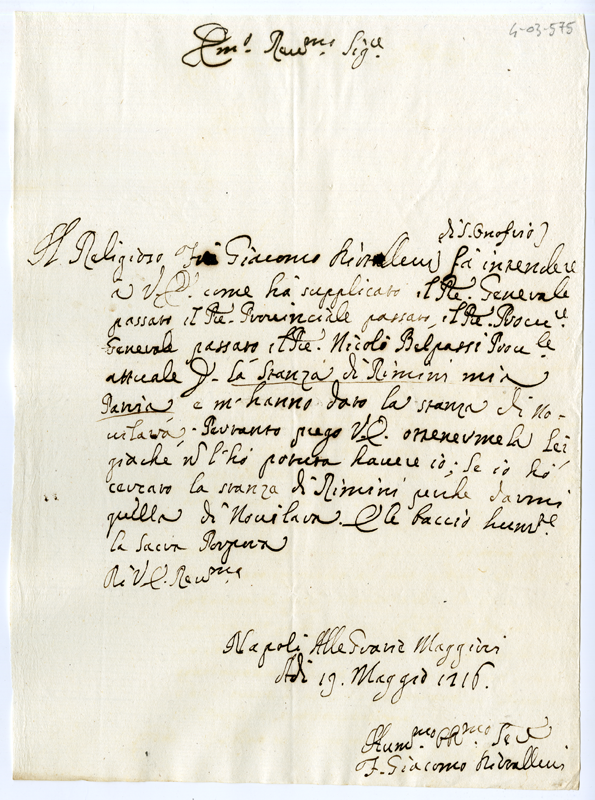 4-03-575
Em.o Reu.mo Sig.e
di S. Onofrio)
Il Religioso Fra Giacomo Rivalleni fà intendere
a V.E. come hà supplicato il P.re Generale
passato, il P.re Provinciale passato, il P.re Procu.re
Generale passato il P.re Nicolò Belpassi Proc.le
attuale P. la Stanza di Rimini mia
Patria e m'hanno dato la stanza di No-
uilara, Pertanto prego V.E. ottenermela Lei
giache ñ l'hò potuta hauere io; Se io hò
cercato la stanza di Rimini perche darmi
quella di Nouilara. E le baccio hum.te
la Sacra Porpora
Di V.E. Reu.ma
Napoli Alle Gratie Maggiori
Adi 19. Maggio 1716.
Hum.mo Obl.mo Se.e
F. Giacomo Rivalleni